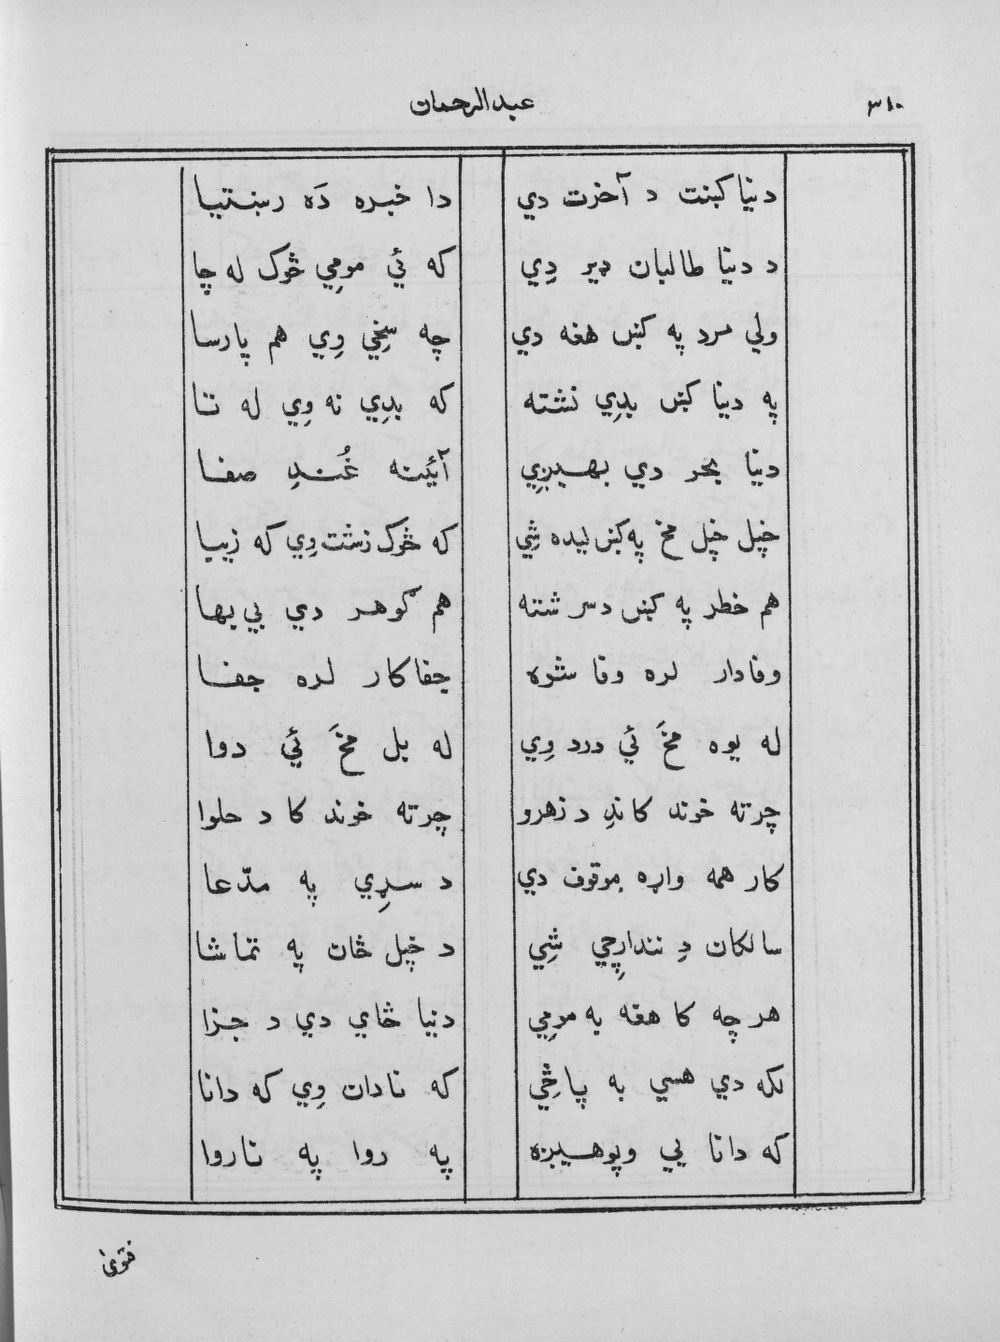 ٣١٠ عبدالرحمان
دنيا کښت د آخرت دي دا خبره دَه رښتيا
د دنيا طالبان ډير دِي که ئي مومِي څوک له چا
ولي مرد په کښ هغه دي چه سخِي وِي هم پارسا
په دنيا کښ بدِي نشته که بدِي نه وِي له تا
دنيا بحر دي بهيږِي آئينه غُندِ صفا
خپل خپل مخ په کښ ليده شِي که څوک زشت وِي که زيبا
هم خطر په کښ دسر شته هم ګوهر دي بي بها
وفادار لره وفا شره جفاکار لره جفا
له يوه مخَ ئي درد وِي له بل مخَ ئي دوا
چرته خوند کاندِ د زهرو چرته خوند کا د حلوا
کار همه واړه موقوف دي د سړِي په مدّعا
سالکان دِ ننداره‌چِي شِي د خپل ځان په تماشا
هر چه کا هغه به مومِي دنيا ځاي دي د جزا
لکه دي هسي به پاڅِي که نادان وِي که دانا
که دانا يي وپوهيږه په روا په ناروا
فتوىٰ